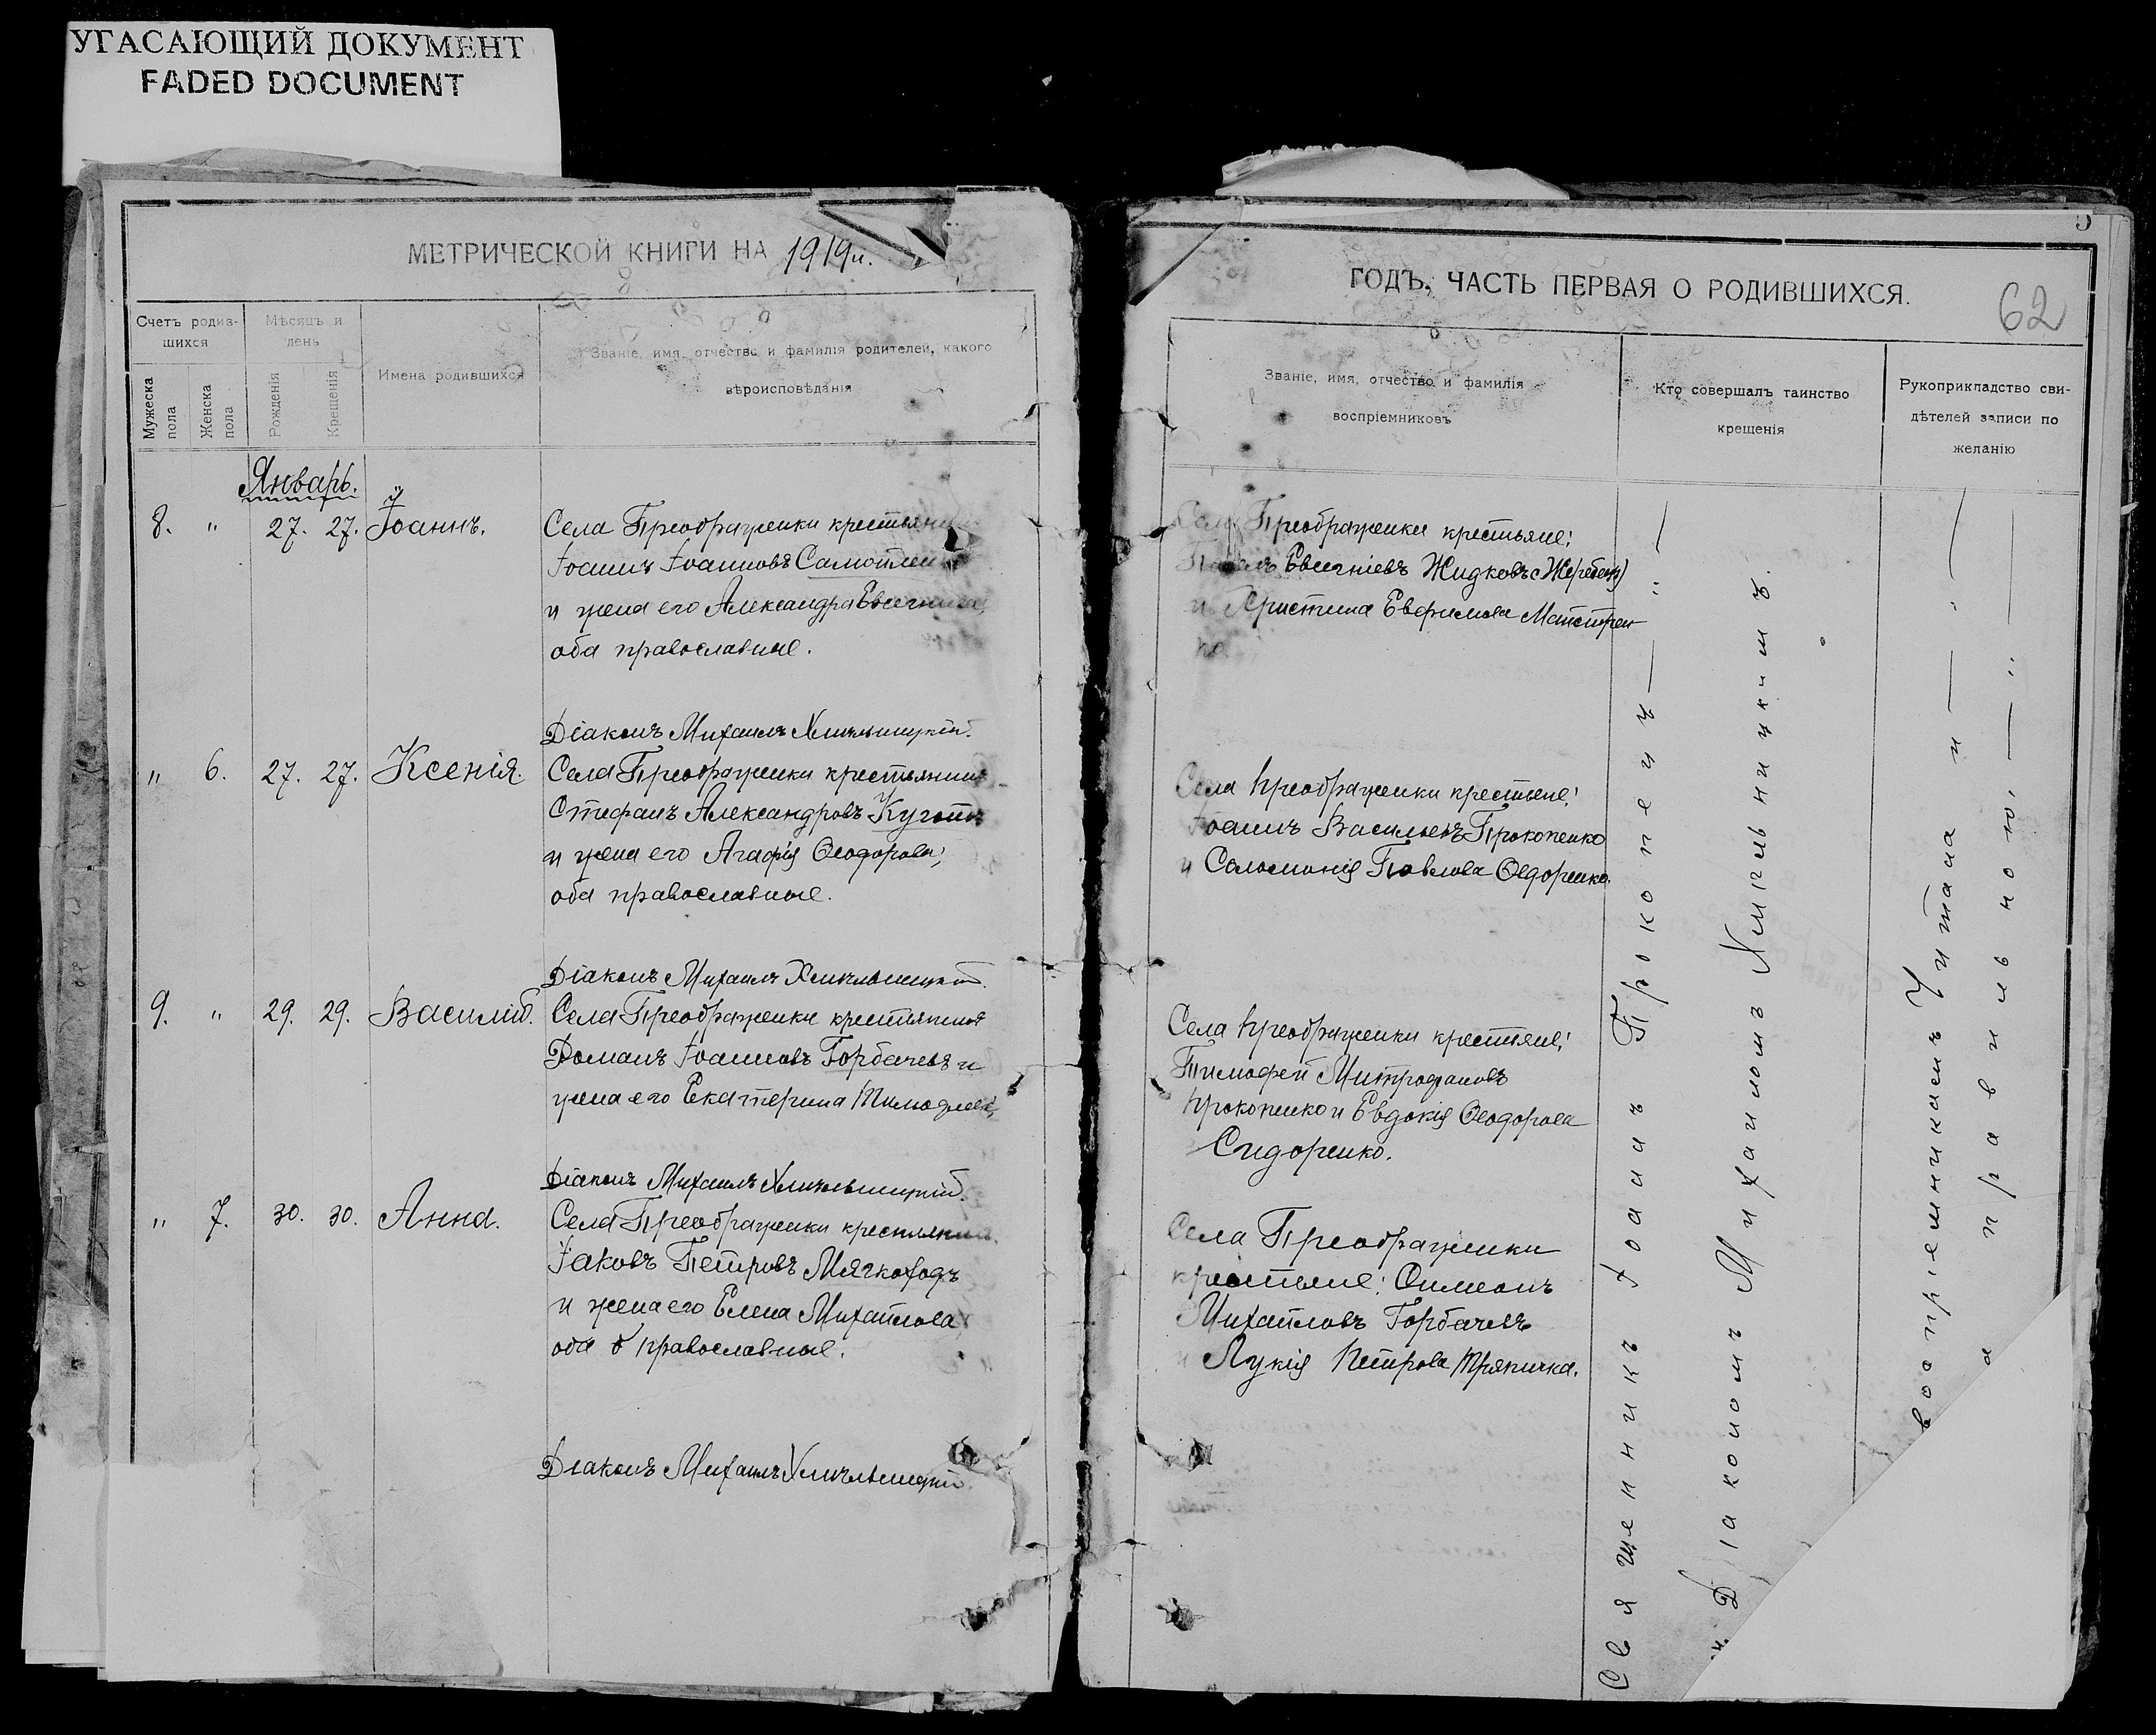 УГАСАЮЩИЙ ДОКУМЕНТ
FADED DOCUMENT
МЕТРИЧЕСКОЙ КНИГИ НА 1919й.
Счетъ родив-
шихся
Мѣсяцъ и
день
Имена родившихся
Званіе, имя, отчество и фамилія родителей, какого
вѣроисповѣданія
Мужеска
пола
Женска
пола
Рожденія
Крещенія
Январь.
8. " 27. 27. Іоаннъ.
Села Преображенки
Іоаннъ Іоанновъ
и жена его Александра
оба православные.
Діаконъ Михаилъ Хмѣльницкій.
" 6. 27. 27. Ксенія.
Села Преображенки крестьянинъ
Стефанъ Александровъ
и жена его Агафія Ѳеодорова;
оба православные.
Діаконъ Михаилъ Хмѣльницкій.
9. " 29. 29. Василій.
Села Преображенки крестьянинъ
Романъ Іоанновъ Горбачевъ и
жена его Екатерина
Діаконъ Михаилъ Хмѣльницкій.
" 7. 30. 30. Анна.
Села Преображенки крестьянинъ
Іаковъ Петровъ Мягкоходъ
и жена его Елена Михайлова
оба православные.
Діаконъ Михаилъ Хмѣльницкій.
5
ГОДЪ, ЧАСТЬ ПЕРВАЯ О РОДИВШИХСЯ.
62
Званіе, имя, отчество и фамилія
воспріемниковъ
Кто совершалъ таинство
крещенія
Рукоприкладство сви-
дѣтелей записи по
желанію
Села Преображенки крестьяне:
Евгеніевъ Жидковъ
и Христина Евфимова
Села Преображенки крестьяне:
Іоаннъ Васильевъ Прокопенко
и Соломонія Павлова Ѳедоренко.
Села Преображенки крестьяне:
Тимофей Митрофановъ
Прокопенко и Евдокія Ѳеодорова
Сидоренко.
Села Преображенки
крестьяне: Симеонъ
Михайловъ Горбачевъ
и Лукія Петрова Тряпичка.
Священникъ Іоаннъ Прокопецъ
и Діакономъ Михаиломъ Хмѣльницкимъ.
воспріемникамъ Читала и
правильною,